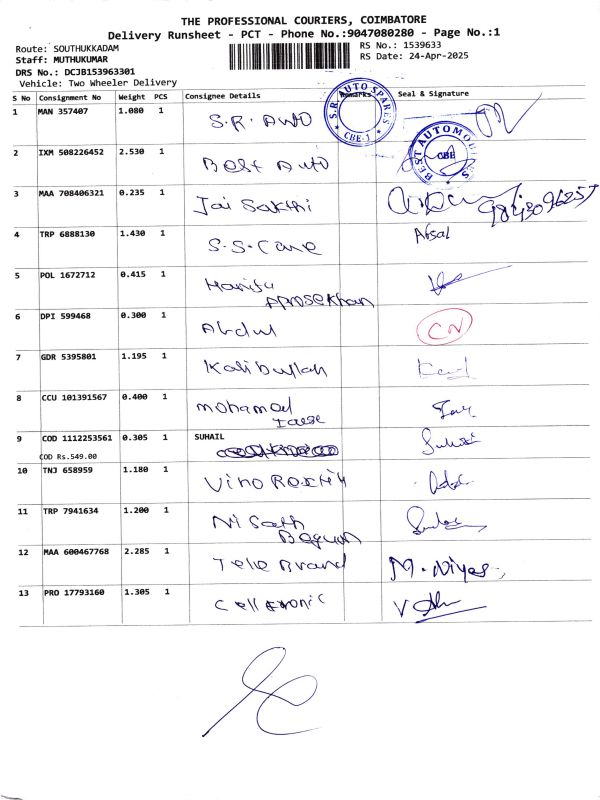 THE PROFESSIONAL COURIERS, COIMBATORE
Delivery Runsheet - PCT - Phone No.:9047080280 - Page No.:1
Route: SOUTHUKKADAM
RS No.: 1539633
Staff: MUTHUKUMAR
RS Date: 24-Apr-2025
DRS No.: DCJB153963301
Vehicle: Two Wheeler Delivery
S No Consignment No Weight PCS Consignee Details Remarks Seal & Signature
S.R. AUTO SPARES
CBE-1
1 MAN 357407 1.080 1 S.R. Auto
BEST AUTOMOBILES
CBE
2 IXM 508226452 2.530 1 Best Auto
3 MAA 708406321 0.235 1 Jai Sakthi
9843096257
4 TRP 6888130 1.430 1 S.S. Care Afsal
5 POL 1672712 0.415 1
6 DPI 599468 0.300 1 Abdul CN
7 GDR 5395801 1.195 1 Kalibullah
8 CCU 101391567 0.400 1 mohamed
9 COD 1112253561 0.305 1 SUHAIL
COD Rs.549.00
10 TNJ 658959 1.180 1
11 TRP 7941634 1.200 1 Nisath
Begum
12 MAA 600467768 2.285 1 Tele Brand M. Niyas
13 PRO 17793160 1.305 1 Celltronic